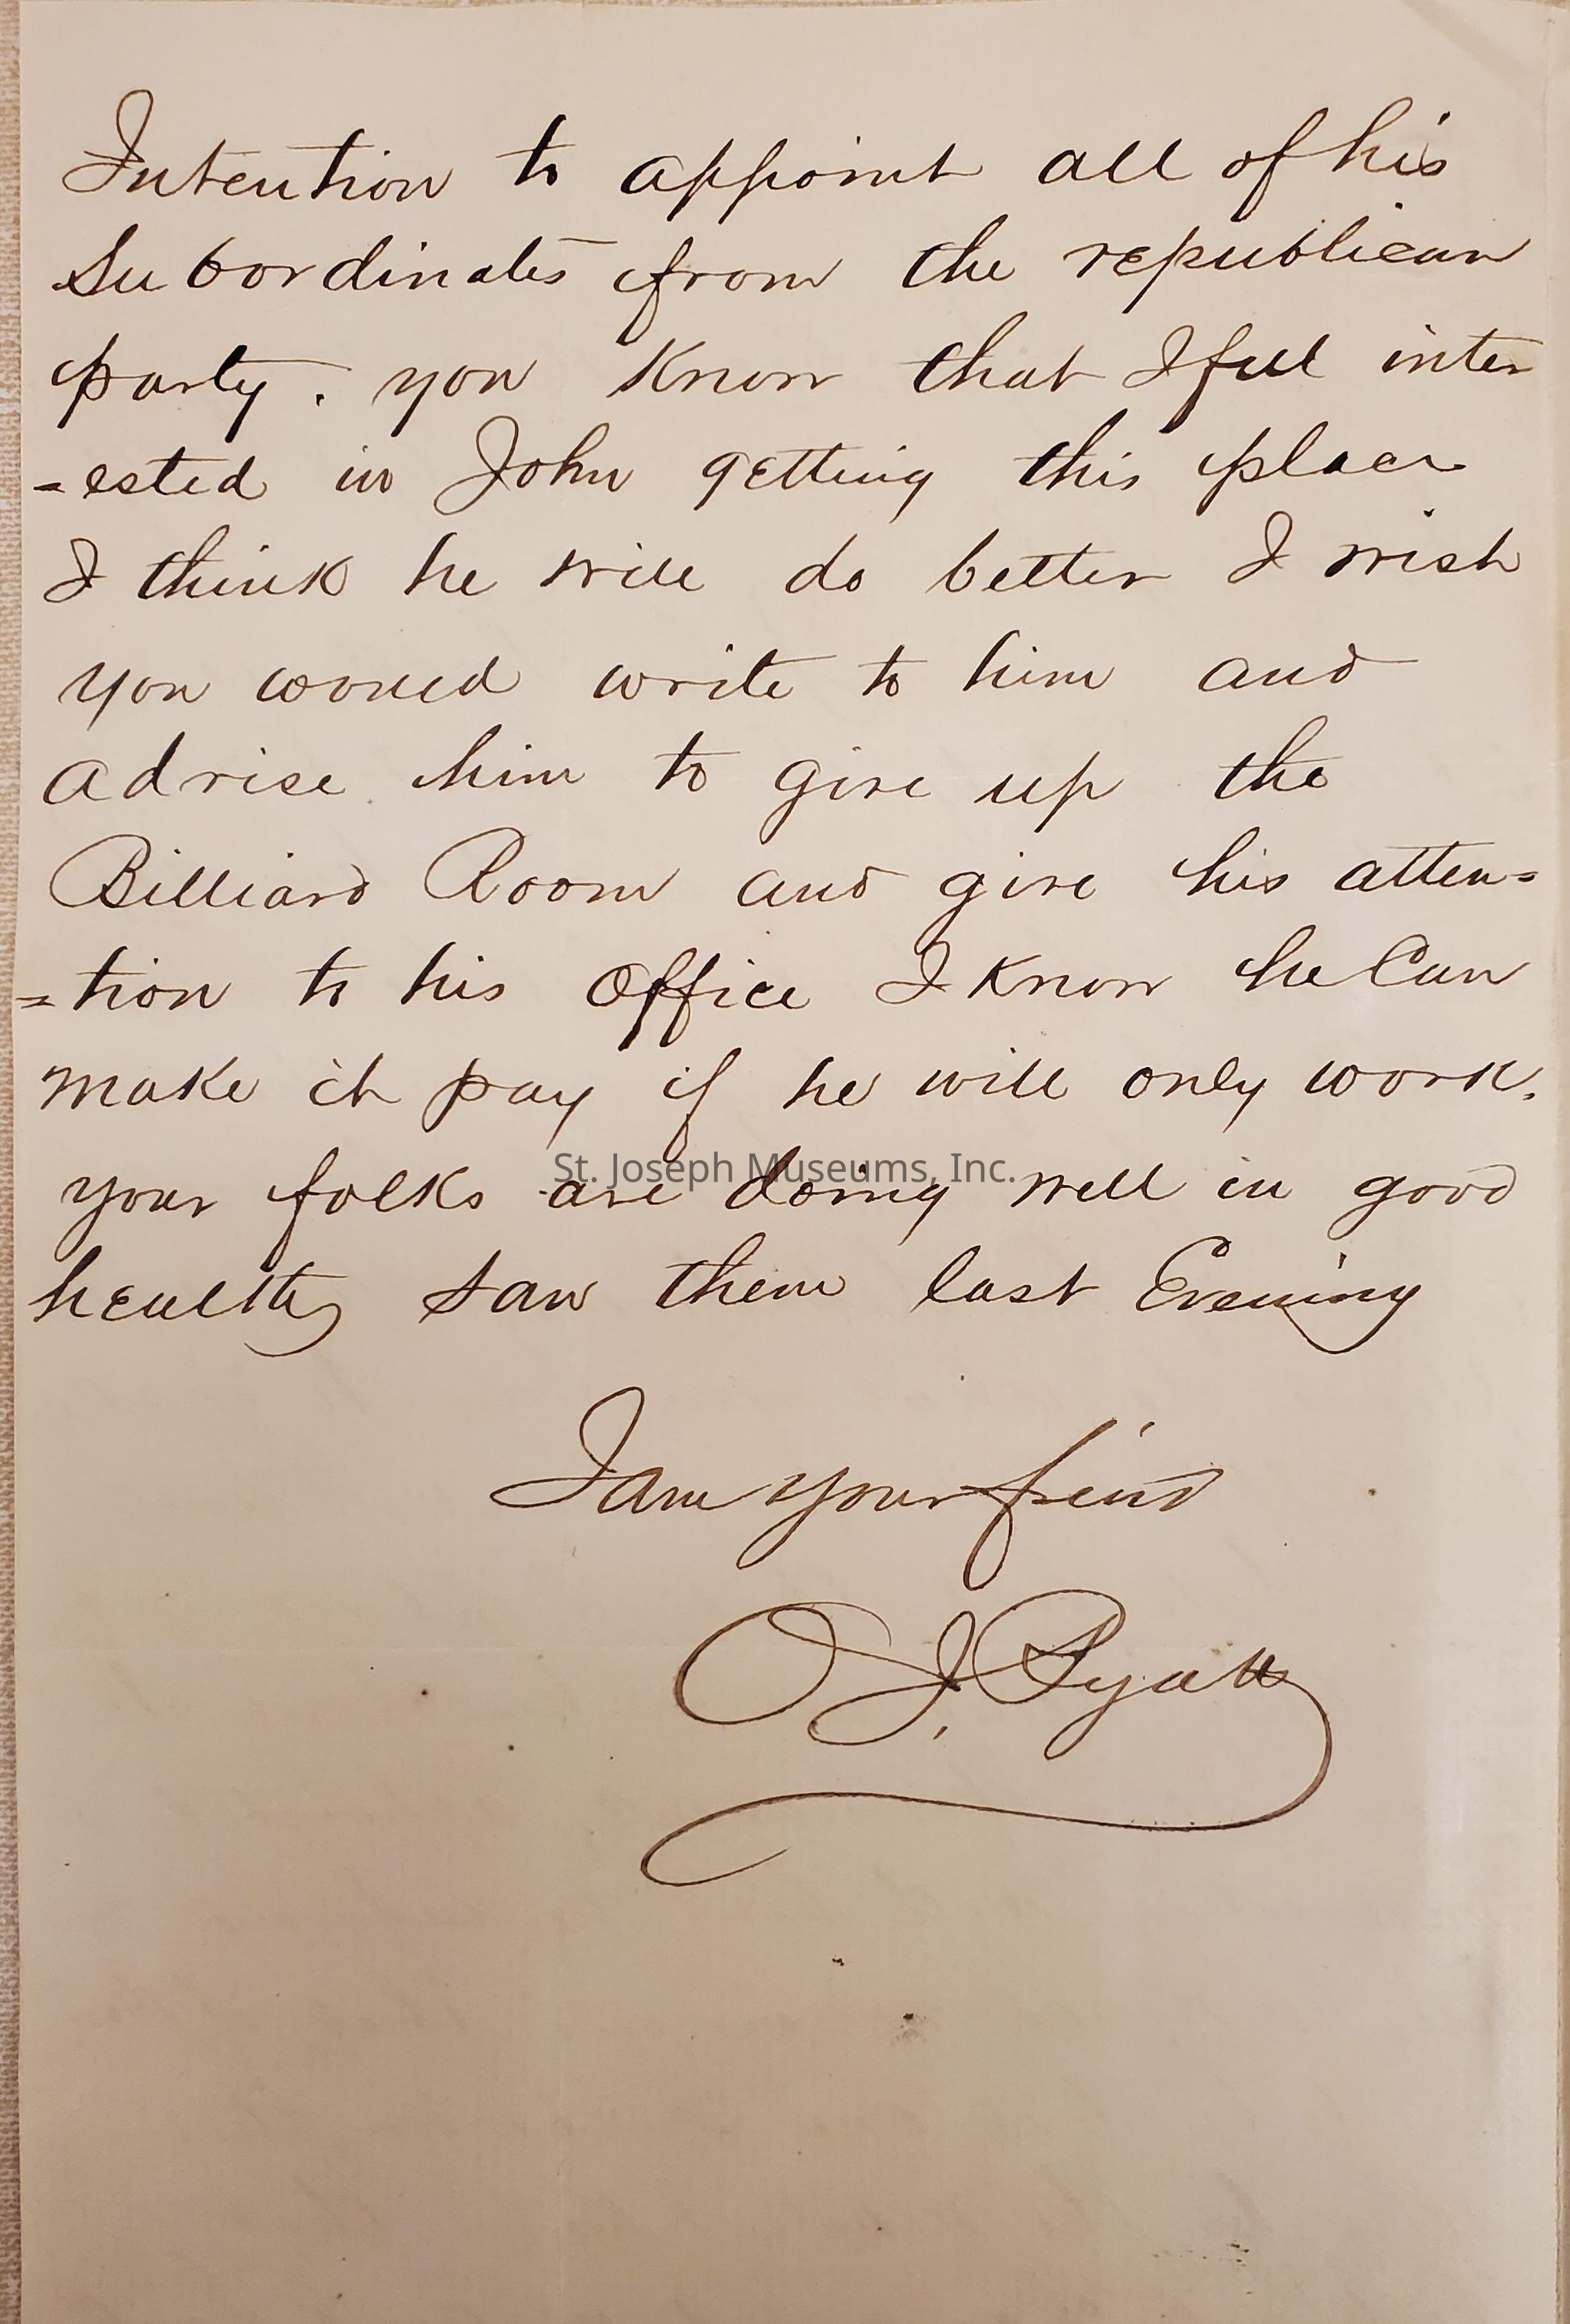 Intention to appoint all of his
Subordinates from the republican
party. you Know that I feel inter
=ested in John getting this place
I think he will do better I wish
you would write to him and
advise him to give up the
Billiard Room and give his atten=
=tion to his Office I Know he Can
make it pay if he will only work.
St. Joseph Museums, Inc.
your folks are doing well in good
health saw them last Evening
I am your frend
O J. Pyatt